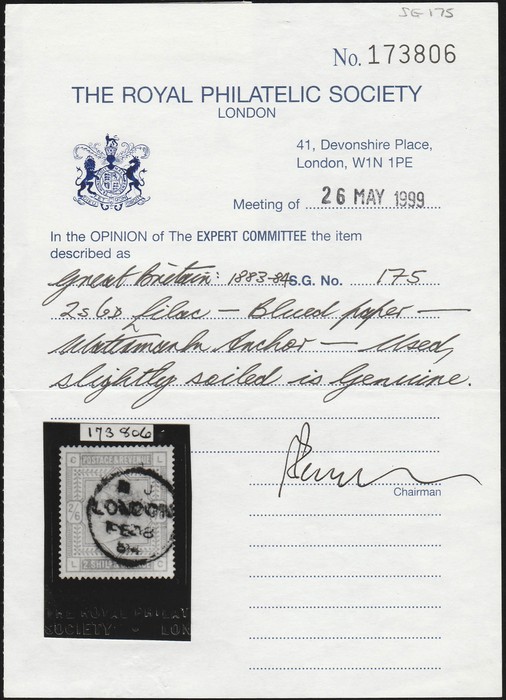 SG 175
No. 173806
THE ROYAL PHILATELIC SOCIETY
LONDON
41, Devonshire Place,
London, W1N 1PE
Meeting of 26 MAY 1999
In the OPINION of The EXPERT COMMITTEE the item
described as
Great Britain: 1883-84 S.G. No. 175
2s6D Lilac — Blued paper —
Watermark Anchor — Used,
slightly soiled is Genuine.
Chairman
173806
C POSTAGE & REVENUE L
J
LONDON
FE 18
84
2/6
2 SHILL
L C
THE ROYAL PHILAT
SOCIETY - LON